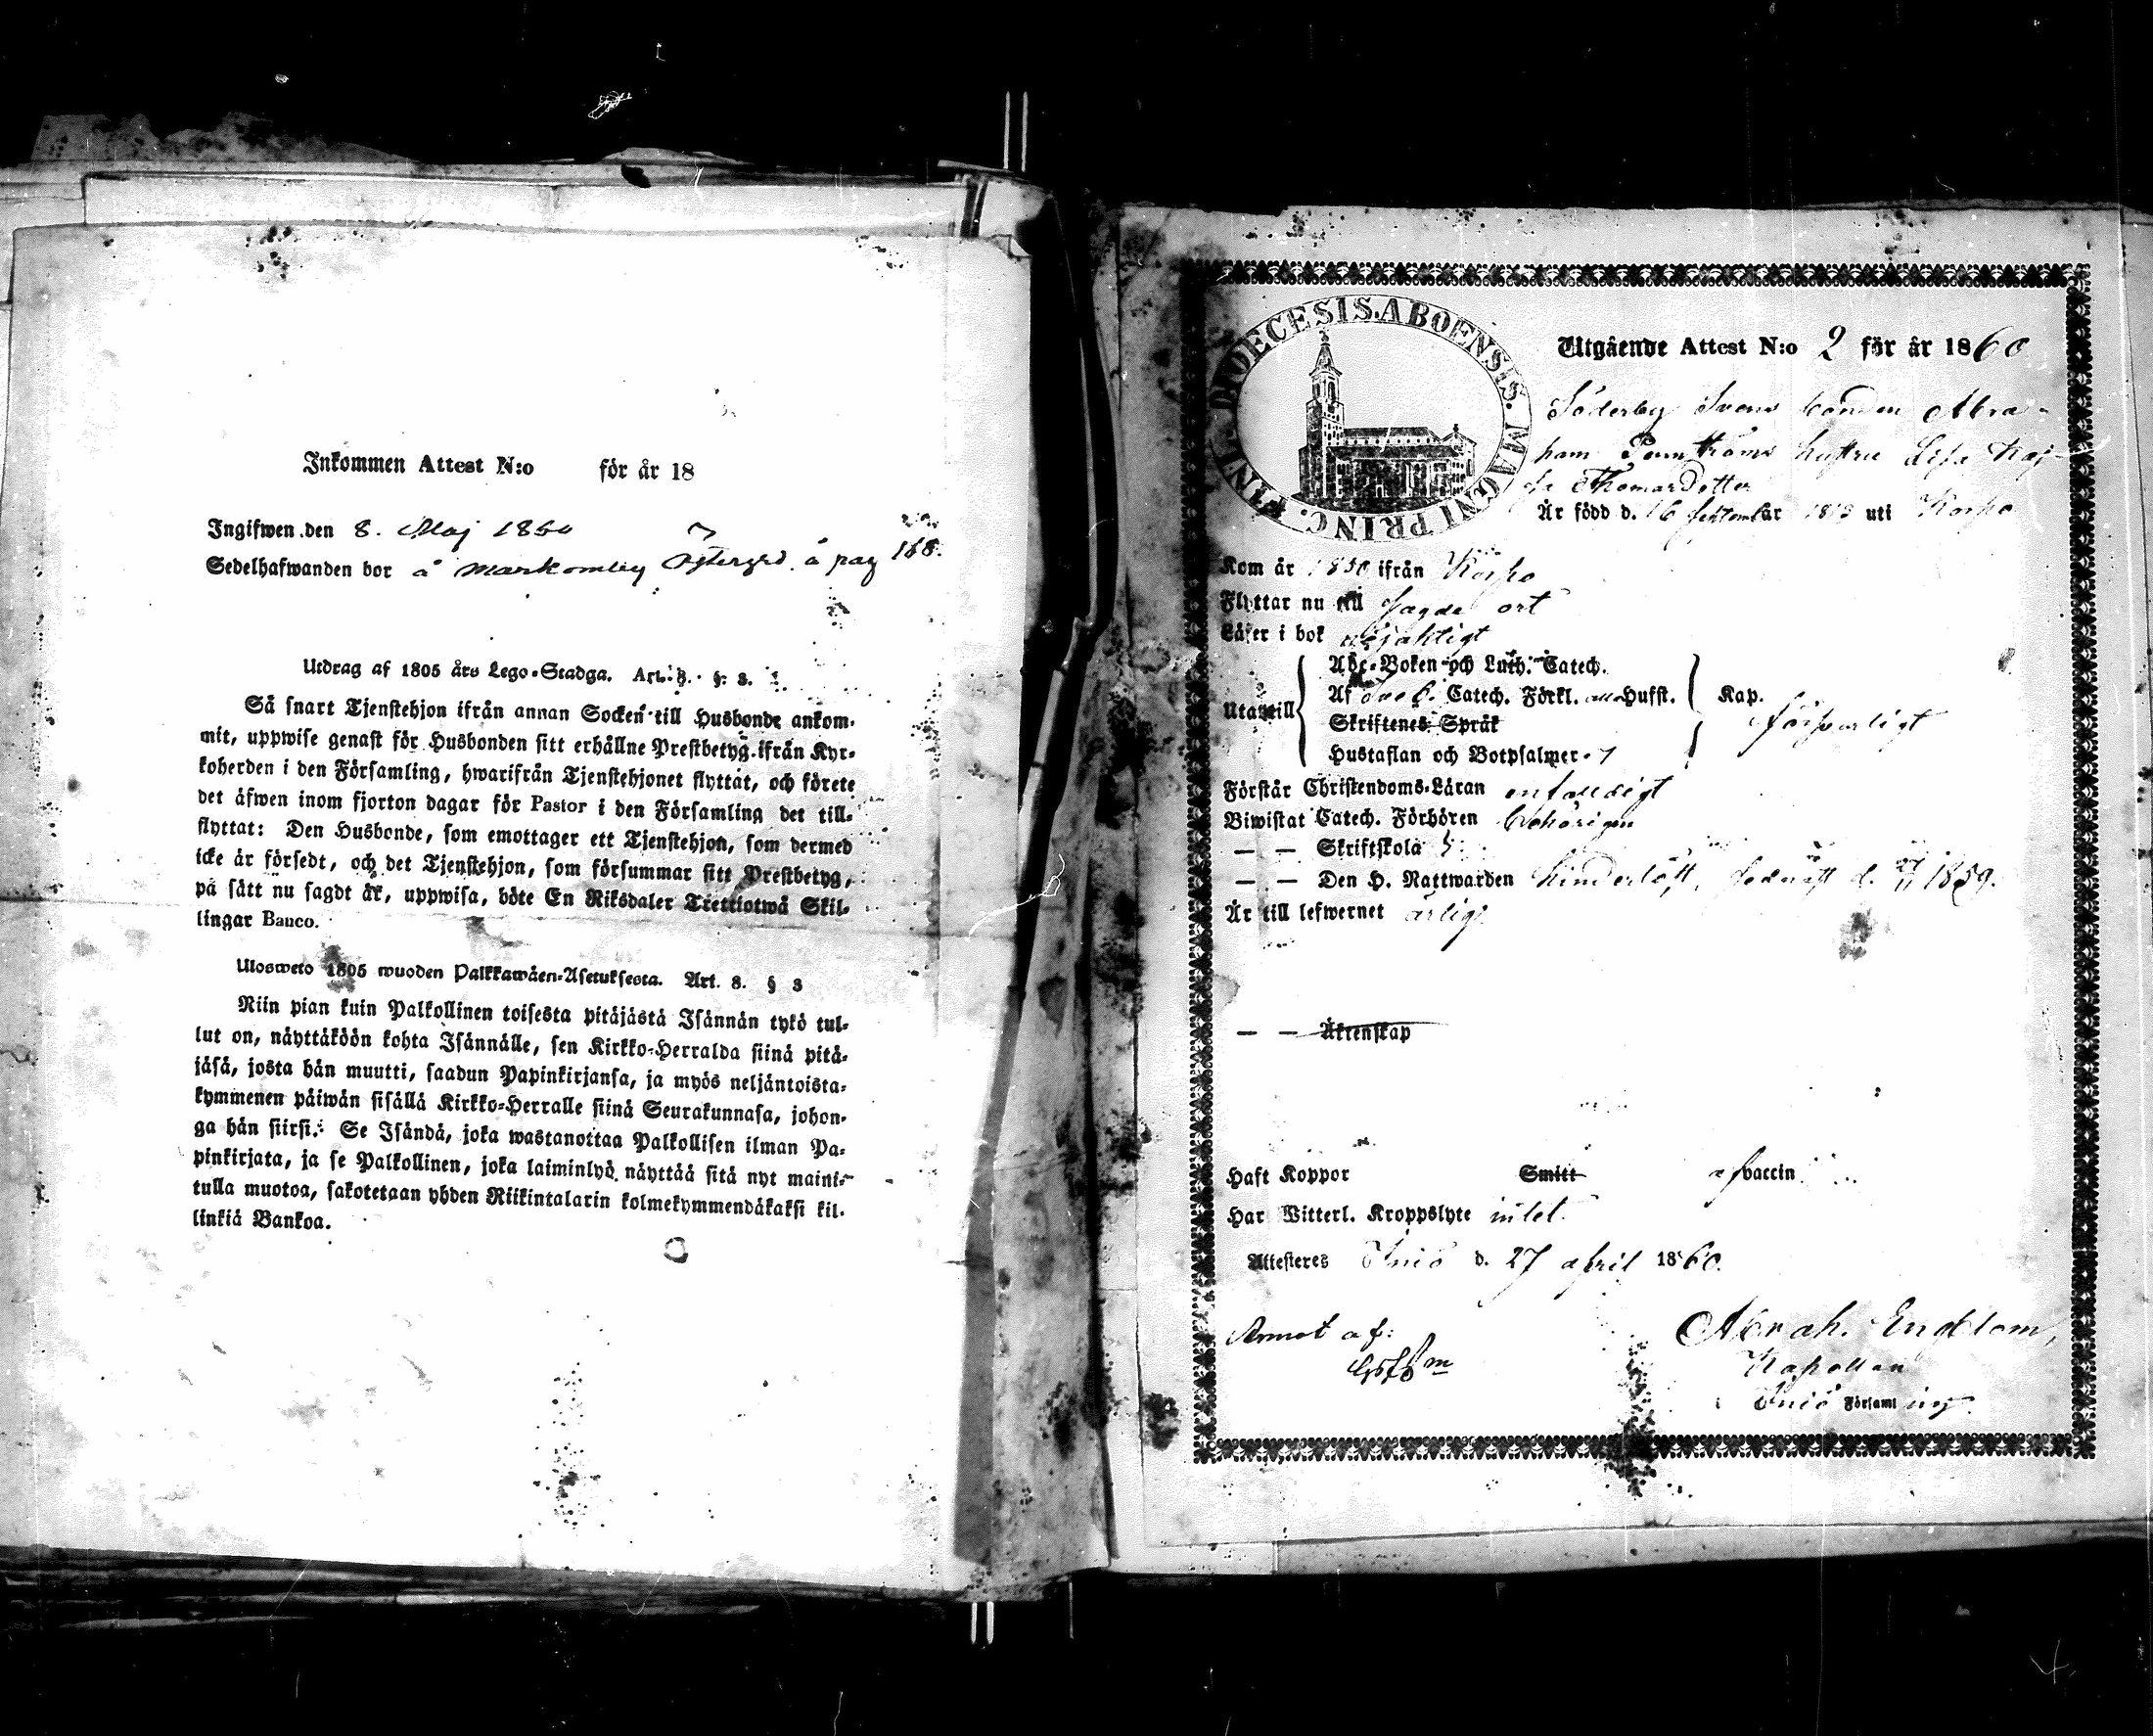 Inkommen Attest N:o för år 18
Ingifwen den 8. Maj 1860
Sedelhafwanden bor å Markomby Östergrd. å pag 168.
Utdrag af 1805 års Lego-Stadga. Art. 8. §. 3.
Så snart Tjenstehjon ifrån annan Socken till Husbonde ankom-
mit, uppwise genast för Husbonden sitt erhållne Prestbetyg ifrån Kyr-
koherden i den Församling, hwarifrån Tjenstehjonet flyttat, och förete
det äfwen inom fjorton dagar för Pastor i den Församling det till-
flyttat: Den Husbonde, som emottager ett Tjenstehjon, som dermed
icke är försedt, och det Tjenstehjon, som försummar sitt Prestbetyg,
på sått nu sagdt är, uppwisa, böte En Riksdaler Trettiotwå Skil-
lingar Banco.
Ulosweto 1805 wuoden Palkkawäen-Asetuksesta. Art. 8. § 3
Niin pian kuin Palkollinen toisesta pitäjästä Isännän tykö tul-
lut on, näyttäköön kohta Isännälle, sen Kirkko-Herralda siinä pitä-
jäsä, josta hän muutti, saadun Papinkirjansa, ja myös neljäntoista-
kymmenen päiwän sisällä Kirkko-Herralle siinä Seurakunnasa, johon-
ga hän siirsi. Se Isändä, joka wastanottaa Palkollisen ilman Pa-
pinkirjata, ja se Palkollinen, joka laiminlyö näyttää sitä nyt maini-
tulla muotoa, sakotetaan yhden Riikintalarin kolmekymmendäkaksi kil-
linkiä Bankoa.
FINL. DIOECESIS. ABOENSIS. MAGNI PRINC.
Utgående Attest N:o 2 för år 1860
Söderby Svens bonden Abra-
ham hustru Lisa Kaj-
sa Thomasdotter
Är född d. 16 September 1813 uti Korpo
Kom år 1850 ifrån Korpo
Flyttar nu till sagde ort
Läser i bok nöjaktigt
Utantill
Abc-Boken och Luth. Catech.
Af Catech. Förkl. Husst. Kap.
Skriftenes Språk försvarligt
Hustaflan och Botpsalmer
Förstår Christendoms-Läran enfaldigt
Biwistat Catech. Förhören behörigen
— — Skriftskola
— — Den H. Nattwarden hinderlöst, sednast d. 27/11 1859.
Är till lefwernet ärlig
— — Äktenskap
Haft Koppor Smitt af vaccin
Har Witterl. Kroppslyte intet.
Attesteres Iniö d. 27 april 1860.
Annot af: Abrah. Engblom,
Kapellan
i Iniö Församling